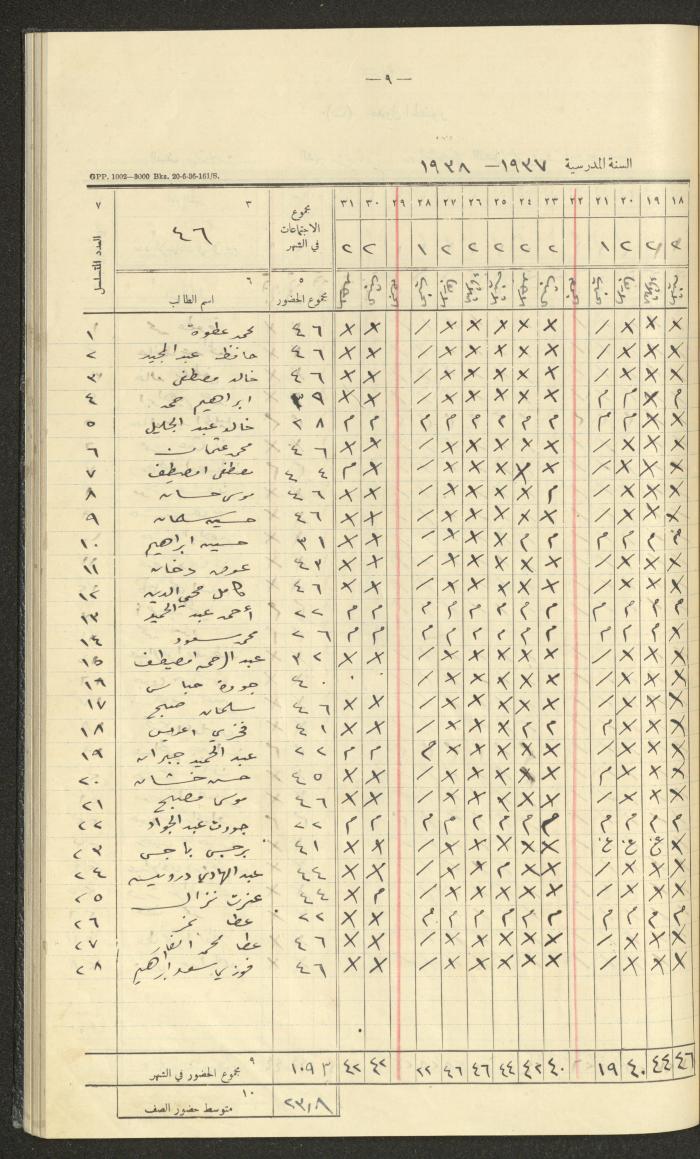 — ٩ —
السنة المدرسية ١٩٣٧ — ١٩٣٨
GPP. 1002—3000 Bks. 20-6-36-161/S.
١٨ ١٩ ٢٠ ٢١ ٢٢ ٢٣ ٢٤ ٢٥ ٢٦ ٢٧ ٢٨ ٢٩ ٣٠ ٣١ مجموع الاجتماعات في الشهر ٣ ٧
٢ ٢ ٢ ١ ٢ ٢ ٢ ٢ ٢ ١ ٢ ٢ ٤٦ العدد المتسلسل
٥ مجموع الحضور ٦ اسم الطالب
× × × / × × × × × / × × ٤٦ محمد عطوة ١
× × × / × × × × × / × × ٤٦ حافظ عبد المجيد ٢
× × × / × × × × × / × × ٤٦ خالد مصطفى ٣
م × م م × × × × × / × × ٣٩ ابراهيم حمد ٤
× × م م م م م م م م م م ٢٨ خالد عبد الجليل ٥
× × × / × × × × × / × × ٤٦ محمد عثمان ٦
× × × / × × × × × / × م ٤٤ مصطفى امصيطف ٧
× × × / م × × × × / × × ٤٦ موسى حسان ٨
× × × / × × × × × / × × ٤٦ حسين سلمان ٩
م م م م م م × × × / × × ٣١ حسين ابراهيم ١٠
× × × / × × × × × / × × ٤٣ عوض دخان ١١
× × × / × × × × × / × × ٤٦ كامل محي الدين ١٢
م م م م م م م م م م م م ٢٢ أحمد عبد الحميد ١٣
× م م م م م م م م م م م ٢٦ محمد سعود ١٤
× × × / × × × × × / × × ٣٢ عبد الرحمن امصيطف ١٥
× × × / × × × × × / ٠ ٠ ٤٠ جودة ١٦
× × × / × × × × × / × × ٤٦ سلمان صبيح ١٧
× × × م م م × × × / × × ٤١ فخري ١٨
× × × / × × × × × م م م ٢٢ عبد الحميد جبران ١٩
× × × م × × × × × / × × ٤٥ حسن خشان ٢٠
× × × / × × × × × / × × ٤٦ موسى مصبح ٢١
م م م م م م م م م م م م ٢٢ جودت عبد الجواد ٢٢
× غ غ غ × × × × × / × × ٤١ برجس ٢٣
× × × / × × م × × / × × ٤٤ عبد الهادي درويش ٢٤
× × × / × × × × × / م × ٤٤ عزت نزال ٢٥
م م م م م م م م م م × × ٢٢ عطا ٢٦
× × × / × × × × × / × × ٤٦ عطا محمد الفار ٢٧
× × × / × × × × × / × × ٤٦ فوزي سعد ابراهيم ٢٨
٤٦ ٤٤ ٤٠ ١٩ ٤٠ ٤٢ ٤٤ ٤٦ ٤٦ ٢٢ ٤٢ ٤٢ ١٠٩٣ ٩ مجموع الحضور في الشهر
٢٣٫٨ ١٠ متوسط حضور الصف